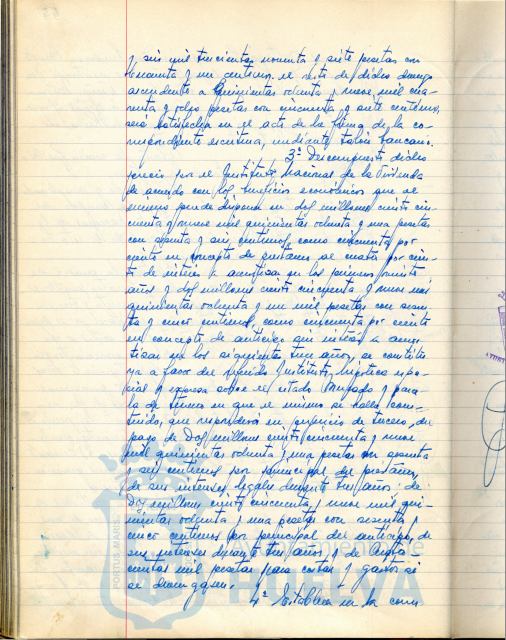 y seis mil trescientas noventa y siete pesetas con
cincuenta y un centimos. el resto de dicho
ascendente a Quinientas ochenta y nueve mil cua-
renta y ocho pesetas con cincuenta y siete centimos,
será satisfecha en el acto de la firma de la co-
rrespondiente escritura, mediante talón bancario.
3º Descompuesto dicho
precio por el Instituto Nacional de la Vivienda
de acuerdo con los beneficios económicos que el
mismo puede disponer en dos millones ciento cin-
cuenta y nueve mil quinientas ochenta y una pesetas
con sesenta y seis centimos, como cincuenta por
ciento en concepto de prestamo al cuatro por cien-
to de interés a amortizar en los primeros
años y dos millones ciento cincuenta y nueve mil
quinientas ochenta y un mil pesetas con sesen-
ta y cinco centimos, como cincuenta por ciento
en concepto de anticipo sin interés a amor-
tizar en los siguientes años, se constitu-
ya a favor del referido Instituto, hipoteca espe-
cial y expresa sobre el citado y para
la de terreno en que el mismo se halla cons-
truido, que responderá en perjuicio de tercero, del
pago de Dos millones ciento cincuenta y nueve
mil quinientas ochenta y una pesetas con sesenta
y seis centimos por principal del prestamo,
de sus intereses legales durante tres años: de
dos millones ciento cincuenta y nueve mil qui-
nientas ochenta y una pesetas con sesenta y
cinco centimos por principal del anticipo, de
sus intereses durante tres años y de
cientas mil pesetas para costas y gastos si
se devengasen.
4º Establecer en la
PORTUS MARIS
Ayuntamiento de
HUELVA